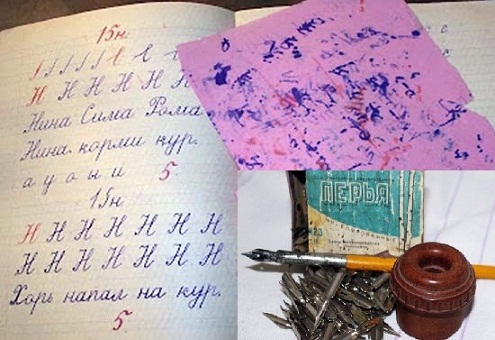 15н.
Н Н Н Н Н Н
Нина Сима Рома
Нина корми кур.
а у о ы и 5
15н
Н Н Н Н Н Н Н
Н Н Н Н Н Н Н
Хорь напал на кур.
5
ПЕРЬЯ